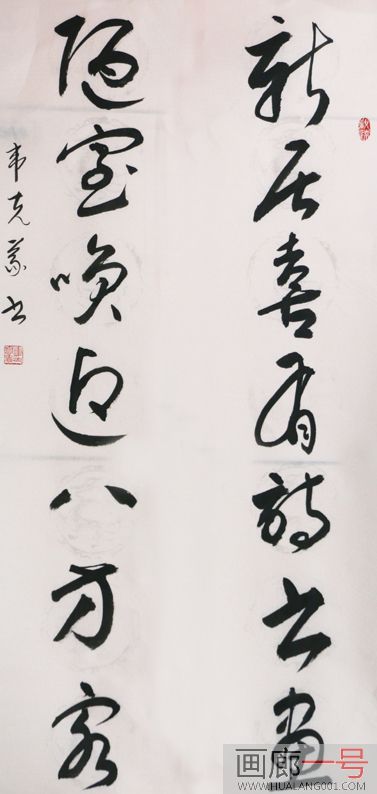 新居喜有詩书畫
陋室咲迎八方客
韦克義书
画廊一号
WWW.HUALANG001.COM